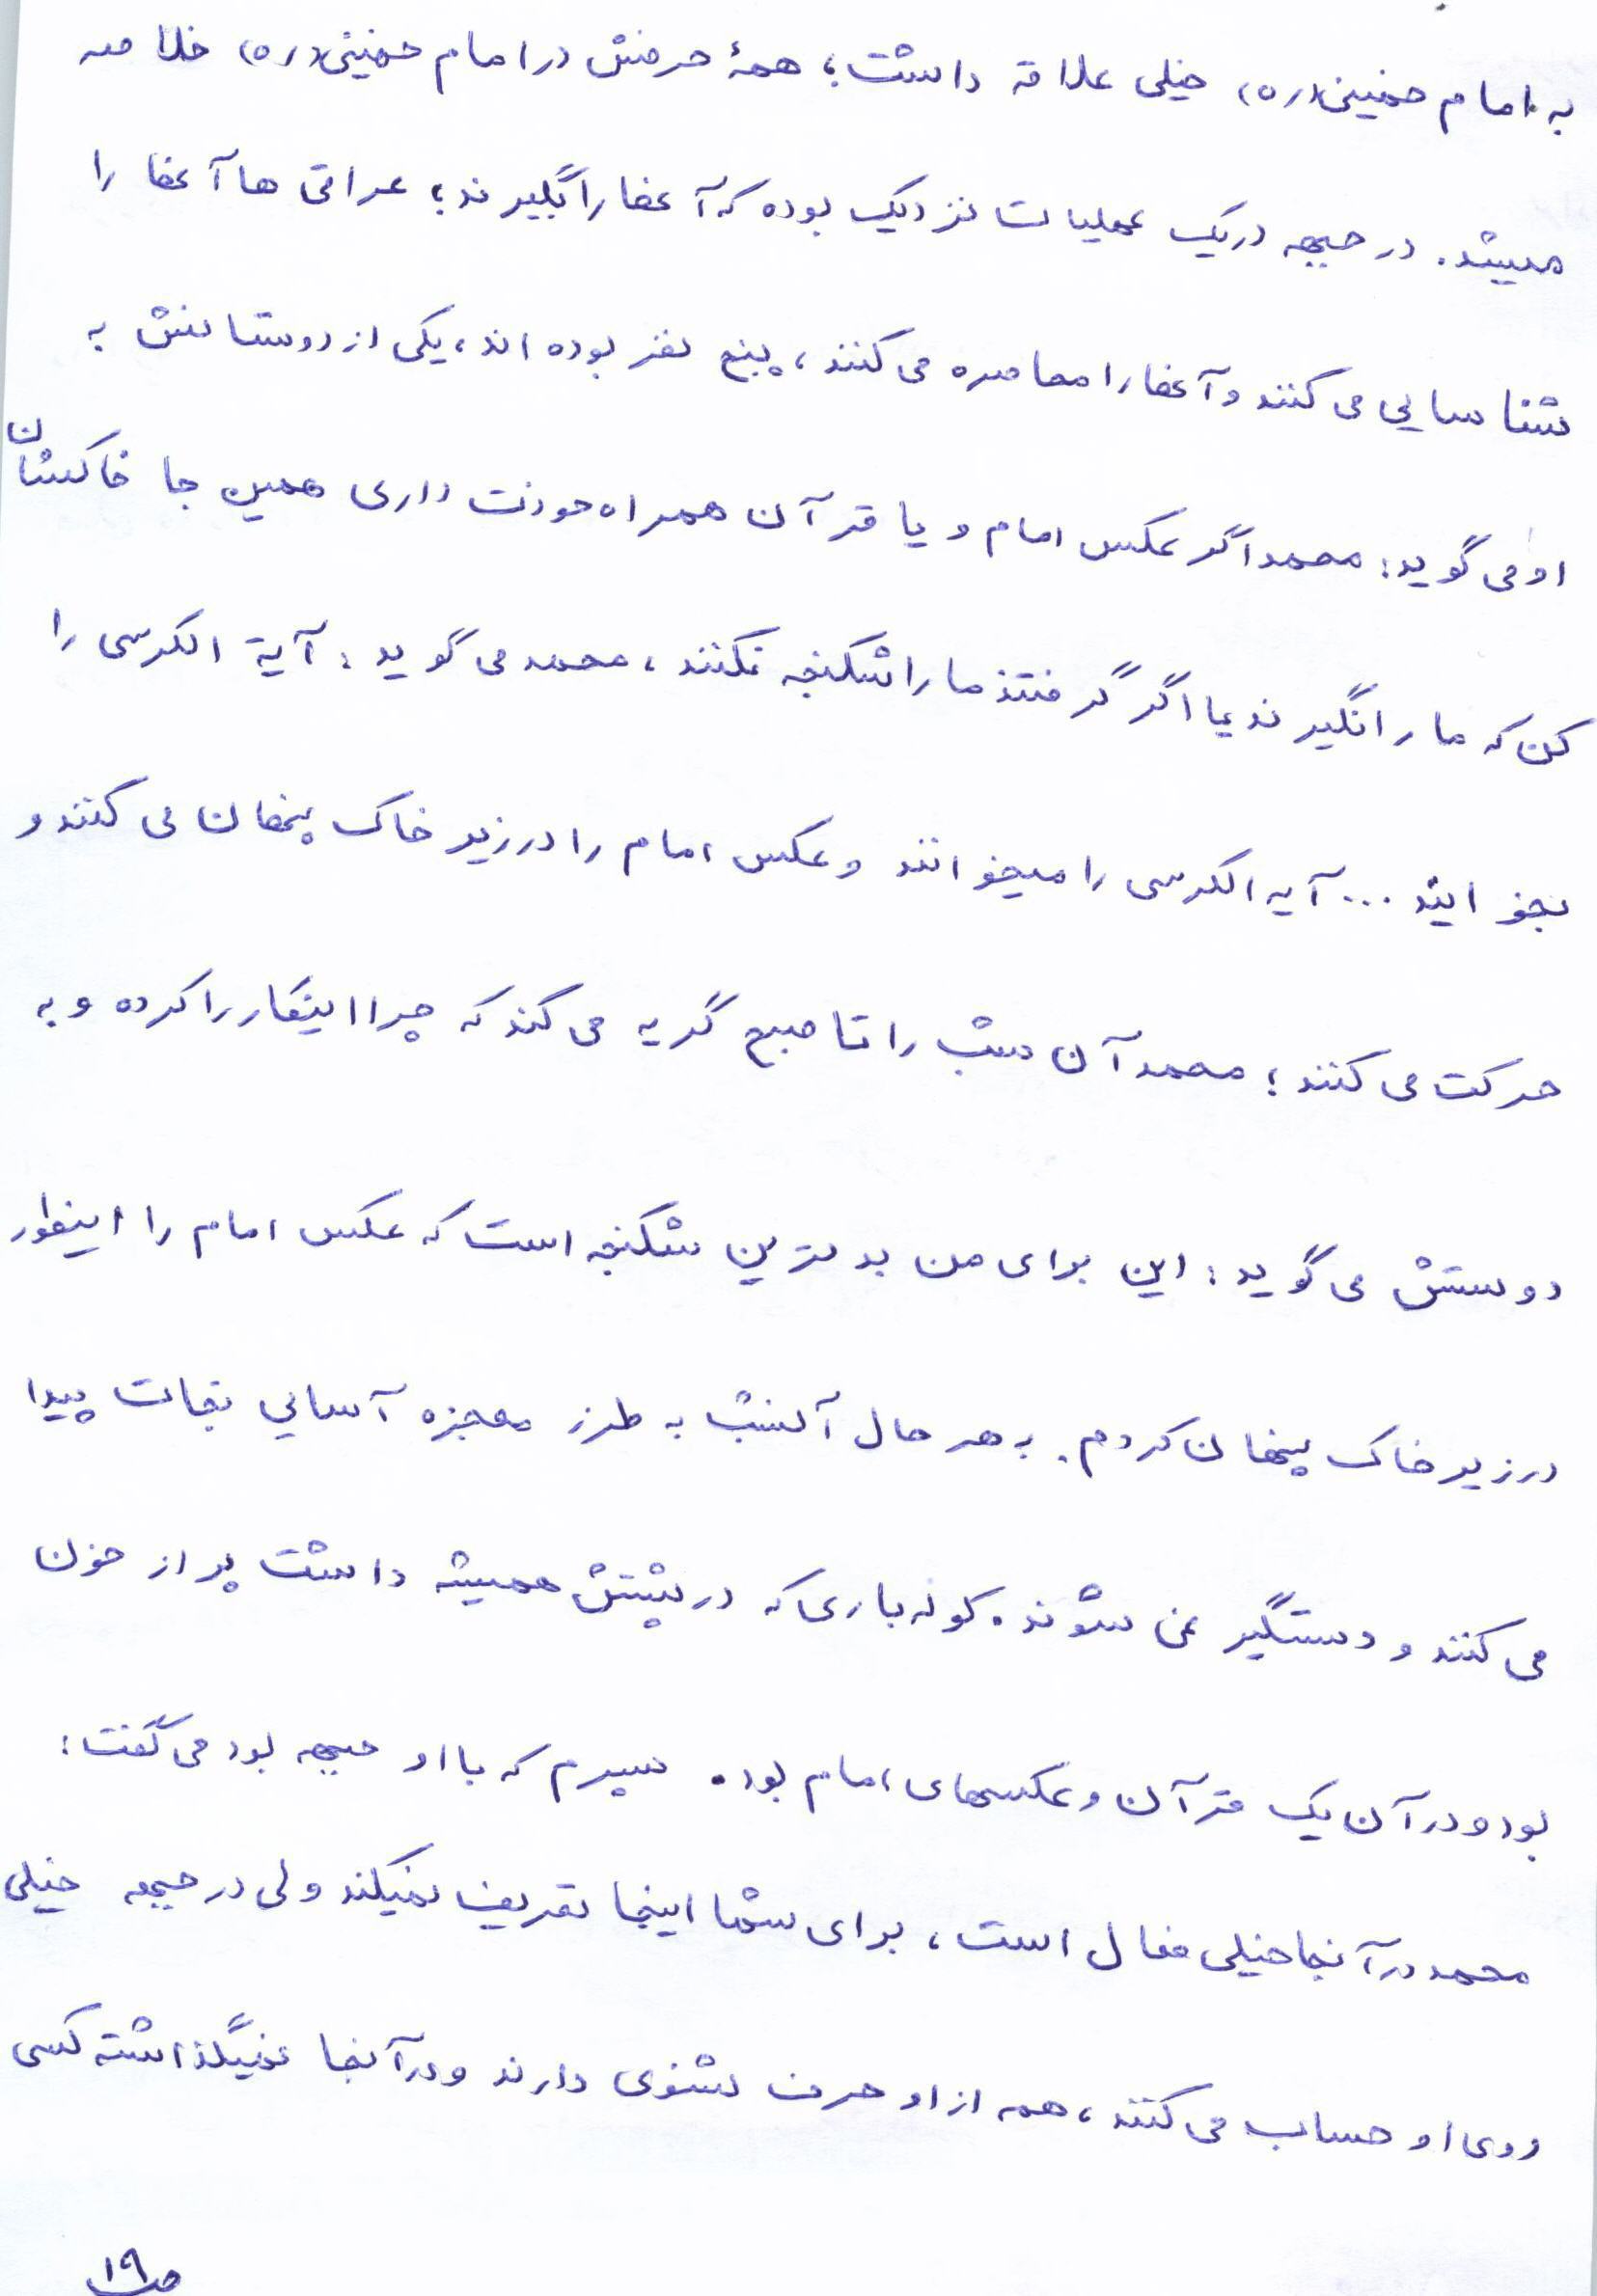 به امام خمینی(ره) خیلی علاقه داشت؛ همهٔ حرفش در امام خمینی(ره) خلاصه
میشد. در جبهه در یک عملیات نزدیک بوده که آنها را بگیرند؛ عراقی ها آنها را
شناسایی می کنند و آنها را محاصره می کنند، پنج نفر بوده اند، یکی از دوستانش به
او می گوید: محمد اگر عکس امام و یا قرآن همراه خودت داری همین جا خاکشان
کن که ما را نگیرند یا اگر گرفتند ما را شکنجه نکنند، محمد می گوید: آیة الکرسی را
بخوانید ... آیه الکرسی را میخوانند و عکس امام را در زیر خاک پنهان می کنند و
حرکت می کنند؛ محمد آن شب را تا صبح گریه می کند که چرا اینکار را کرده و به
دوستش می گوید: این برای من بدترین شکنجه است که عکس امام را اینطور
در زیر خاک پنهان کردم. به هر حال آنشب به طرز معجزه آسایی نجات پیدا
می کنند و دستگیر نمی شوند. کوله باری که در پشتش همیشه داشت پر از خون
بود و در آن یک قرآن و عکسهای امام بود. پسرم که با او جبهه بود می گفت:
محمد در آنجا خیلی فعال است، برای شما اینجا تعریف نمیکند ولی در جبهه خیلی
روی او حساب می کنند، همه از او حرف شنوی دارند و در آنجا نمیگذاشته کسی
ص۱۹